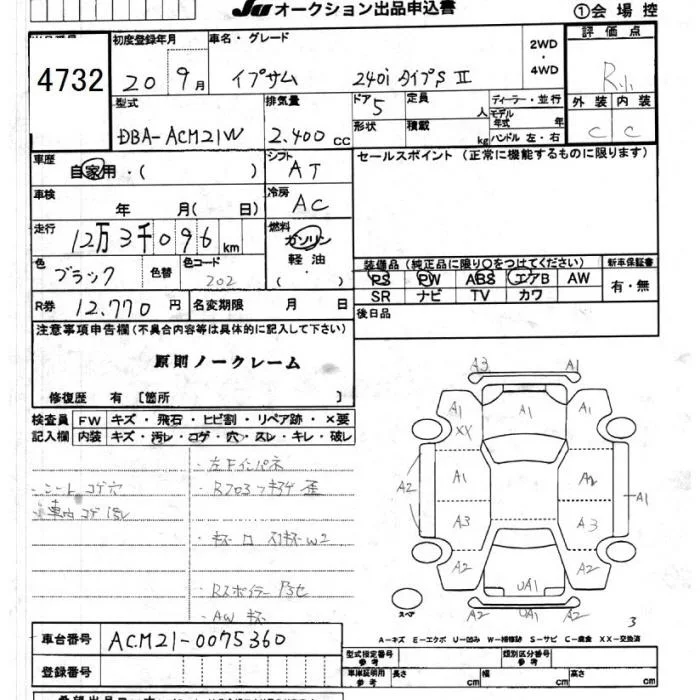 JU オークション出品申込書 ①会場控
4732 初度登録年月 車名・グレード 2WD・4WD 評価点
20 9月 イプサム 240i タイプS II R
型式 排気量 ドア 定員 人 ディーラー・並行 外装 内装
DBA-ACM21W 2.400 CC 5 形状 積載 kg モデル年式 年 ハンドル 左・右 C C
車歴 自家用・( ) シフト AT セールスポイント (正常に機能するものに限ります)
車検 年 月(日) 冷房 AC
走行 12万3千096km 燃料 ガソリン 軽油・( )
色 ブラック 色替 色コード 202
装備品 (純正品に限り○をつけてください) 新車保証書
PS PW ABS エアB AW 有・無
SR ナビ TV カワ
R券 12.770円 名変期限 月 日 後日品
注意事項申告欄 (不具合内容等は具体的に記入して下さい)
原則ノークレーム
修復歴 有 [箇所 ]
検査員記入欄 FW キズ・飛石・ヒビ割・リペア跡・×要
内装 キズ・汚レ・コゲ・穴・スレ・キレ・破レ
・左Fインパネ
・シートコゲ穴
・AW
A3 A1
A1 A1 A1
XX
A2 A1 A2 A1
A3 A3
A2 UA1 A2
A2 UA1 A2
スペア
3
A-キズ E-エクボ U-凹み W-補修跡 S-サビ C-腐食 XX-交換済
車台番号 ACM21-0075360
型式指定番号 参考 類別区分番号 参考
登録番号 車庫証明用 参考 長さ 幅 高さ cm